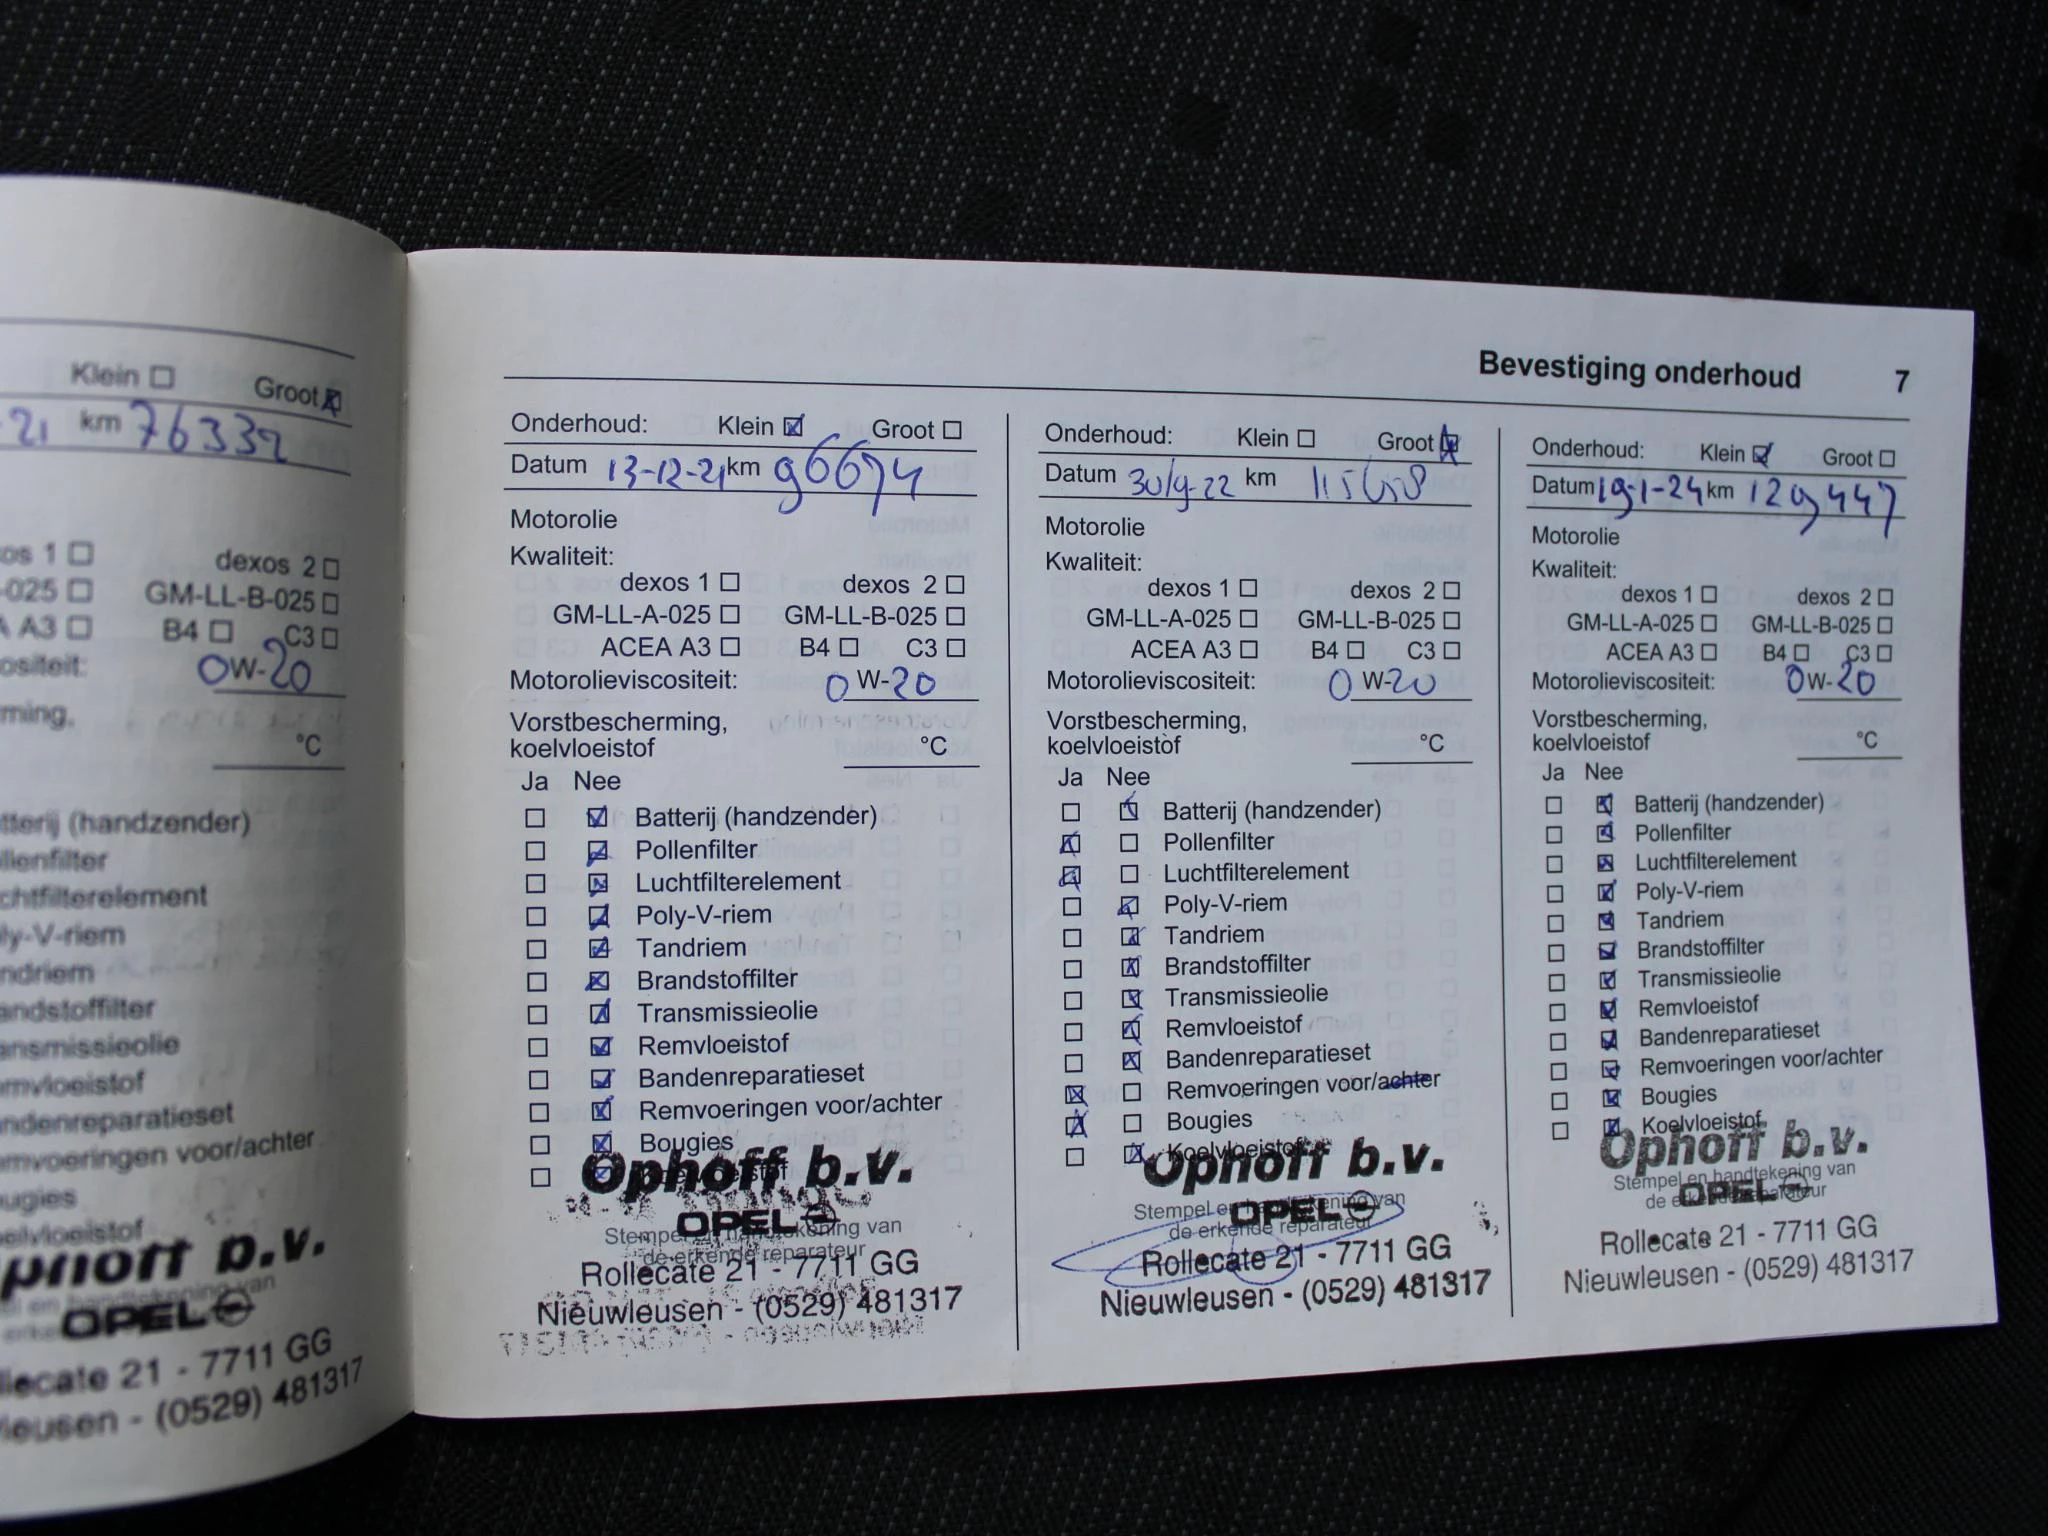 Klein Groot
21 km 76332
os 1 dexos 2
-025 GM-LL-B-025
A3 B4 C3
ositeit: 0W-20
ming,
°C
tterij (handzender)
llenfilter
chtfilterelement
ly-V-riem
ndriem
andstoffilter
ansmissieolie
mvloeistof
ndenreparatieset
mvoeringen voor/achter
ugies
elvloeistof
phoff b.v.
OPEL
llecate 21 - 7711 GG
leusen - (0529) 481317
Bevestiging onderhoud 7
Onderhoud: Klein Groot
Datum 13-12-21 km 96674
Motorolie
Kwaliteit:
dexos 1 dexos 2
GM-LL-A-025 GM-LL-B-025
ACEA A3 B4 C3
Motorolieviscositeit: 0 W-20
Vorstbescherming,
koelvloeistof °C
Ja Nee
Batterij (handzender)
Pollenfilter
Luchtfilterelement
Poly-V-riem
Tandriem
Brandstoffilter
Transmissieolie
Remvloeistof
Bandenreparatieset
Remvoeringen voor/achter
Bougies
Ophoff b.v.
OPEL
Stempel en handtekening van
de erkende reparateur
Rollecate 21 - 7711 GG
Nieuwleusen - (0529) 481317
Onderhoud: Klein Groot
Datum 30/9-22 km
Motorolie
Kwaliteit:
dexos 1 dexos 2
GM-LL-A-025 GM-LL-B-025
ACEA A3 B4 C3
Motorolieviscositeit: 0 W-20
Vorstbescherming,
koelvloeistof °C
Ja Nee
Batterij (handzender)
Pollenfilter
Luchtfilterelement
Poly-V-riem
Tandriem
Brandstoffilter
Transmissieolie
Remvloeistof
Bandenreparatieset
Remvoeringen voor/achter
Bougies
Koelvloeistof
Ophoff b.v.
Stempel en handtekening van
OPEL
de erkende reparateur
Rollecate 21 - 7711 GG
Nieuwleusen - (0529) 481317
Onderhoud: Klein Groot
Datum 19-1-24 km 129447
Motorolie
Kwaliteit:
dexos 1 dexos 2
GM-LL-A-025 GM-LL-B-025
ACEA A3 B4 C3
Motorolieviscositeit: 0 W-20
Vorstbescherming,
koelvloeistof °C
Ja Nee
Batterij (handzender)
Pollenfilter
Luchtfilterelement
Poly-V-riem
Tandriem
Brandstoffilter
Transmissieolie
Remvloeistof
Bandenreparatieset
Remvoeringen voor/achter
Bougies
Koelvloeistof
Ophoff b.v.
Stempel en handtekening van
OPEL
de erkende reparateur
Rollecate 21 - 7711 GG
Nieuwleusen - (0529) 481317